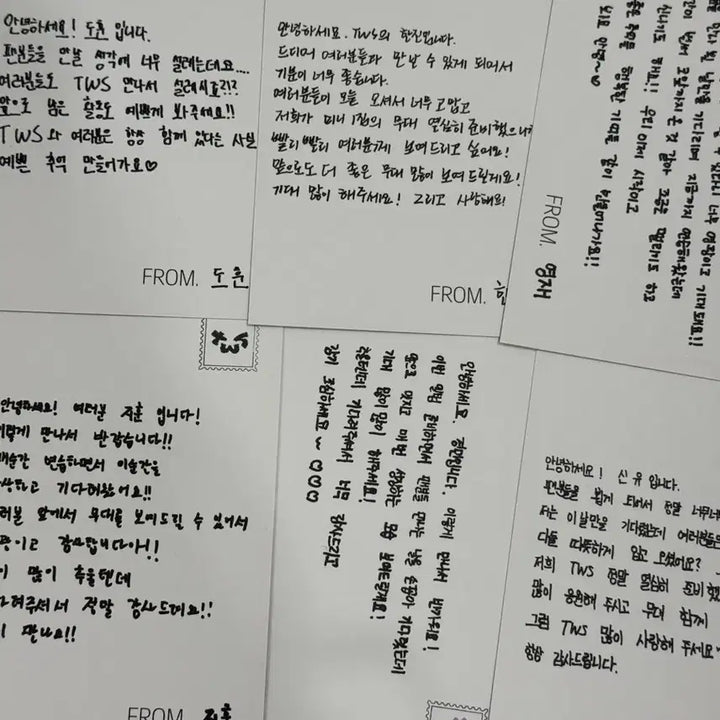 안녕하세요! 도훈 입니다.
팬분들을 만날 생각에 너무 설레는데요....
여러분들도 TWS 만나서 설레시죠?!?
앞으로 남은 활동도 예쁘게 봐주세요!!
TWS와 여러분은 항상 함께 있다는 사실
예쁜 추억 만들어가요♡
FROM. 도훈
안녕하세요. TWS의 한진입니다.
드디어 여러분들과 만날 수 있게 되어서
기분이 너무 좋습니다.
여러분들이 오늘 오셔서 너무 고맙고
저희가 미니 1집의 무대 열심히 준비했으니까
빨리빨리 여러분에게 보여드리고 싶어요!
앞으로도 더 좋은 무대 많이 보여 드릴게요!
기대 많이 해주세요! 그리고 사랑해요!
FROM. 한
너무 영광이고 기대돼요!!
기다리며 지금까지 연습해왔는데
온 것 같아 조금은 떨리기도 하고
신나기도 해요!! 우리 이제 시작이고
행복한 기억을 같이 만들어나가요!!
안녕~
FROM. 영재
안녕하세요! 여러분 지훈 입니다!
이렇게 만나서 반갑습니다!!
연습하면서 이순간을
상상하고 기다려왔어요!!
여러분 앞에서 무대를 보여드릴 수 있어서
감사합니다아!!
많이 추울텐데
기다려주셔서 정말 감사드려요!!
만나요!!
FROM. 지훈
안녕하세요. 경민입니다. 이렇게 만나서 반가워요!
이번 앨범 준비하면서 팬분들 만나는 날을 손꼽아 기다렸는데
앞으로 멋지고 매번 성장하는 모습 보여드릴게요!
기대 많이많이 해주세요!
추운데 기다려주셔서 너무 감사드리고
감기 조심하세요~ ♡♡♡
안녕하세요! 신유 입니다.
팬분들을 뵙게 되어서 정말 너무너무
저는 이날만을 기다렸는데 여러분들도
다들 따뜻하게 입고 오셨어요?
저희 TWS 정말 열심히 준비했
많이 응원해 주시고 무대 함께
그럼 TWS 많이 사랑해 주세요~
항상 감사드립니다.